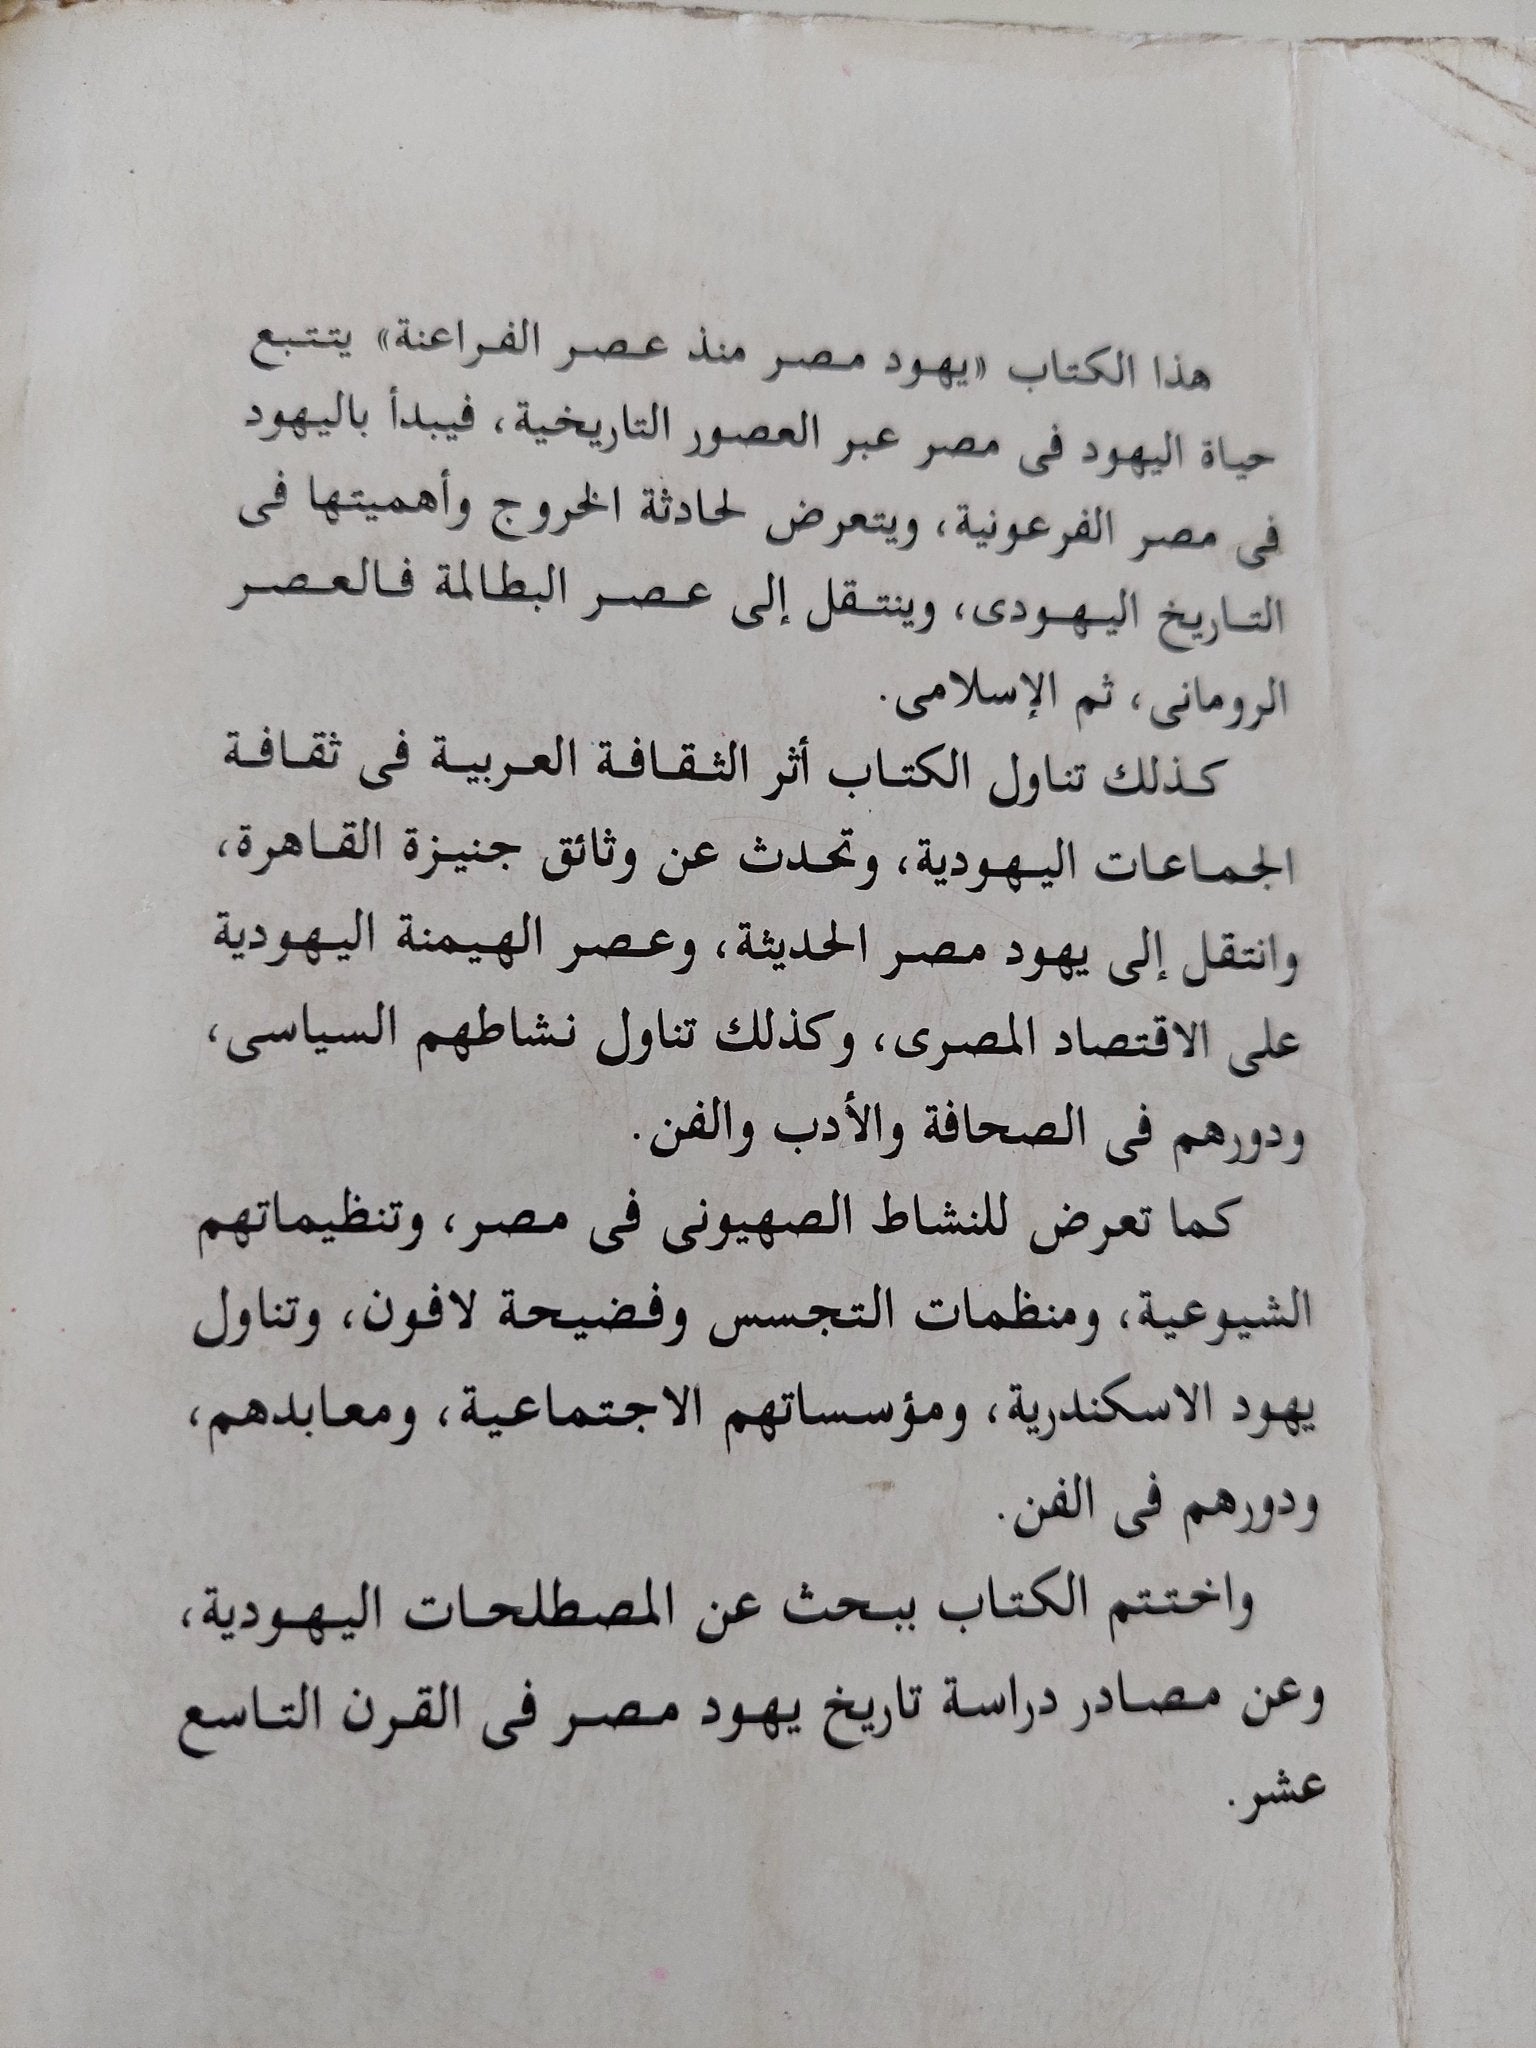 هذا الكتاب «يهود مصر منذ عصر الفراعنة» يتتبع
حياة اليهود فى مصر عبر العصور التاريخية، فيبدأ باليهود
فى مصر الفرعونية، ويتعرض لحادثة الخروج وأهميتها فى
التاريخ اليهودى، وينتقل إلى عصر البطالمة فالعصر
الرومانى، ثم الإسلامى.
كذلك تناول الكتاب أثر الثقافة العربية فى ثقافة
الجماعات اليهودية، وتحدث عن وثائق جنيزة القاهرة،
وانتقل إلى يهود مصر الحديثة، وعصر الهيمنة اليهودية
على الاقتصاد المصرى، وكذلك تناول نشاطهم السياسى،
ودورهم فى الصحافة والأدب والفن.
كما تعرض للنشاط الصهيونى فى مصر، وتنظيماتهم
الشيوعية، ومنظمات التجسس وفضيحة لافون، وتناول
يهود الاسكندرية، ومؤسساتهم الاجتماعية، ومعابدهم،
ودورهم فى الفن.
واختتم الكتاب ببحث عن المصطلحات اليهودية،
وعن مصادر دراسة تاريخ يهود مصر فى القرن التاسع
عشر.